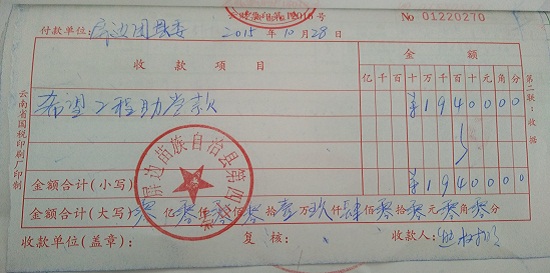 No 01220270
付款单位:屏边团县委 2015 年 10 月 28 日
收 款 项 目 金 额
亿 千 百 十 万 千 百 十 元 角 分
希望工程助学款 ¥ 1 9 4 0 0 0 0
金额合计(小写) ¥ 1 9 4 0 0 0 0
金额合计(大写) 零 亿 零 仟 零 佰 零 拾 壹 万 玖 仟 肆 佰 零 拾 零 元 零 角 零 分
收款单位(盖章): 复 核: 收款人:
云南省国税印刷厂印制
第二联:收据
屏边苗族自治县第四